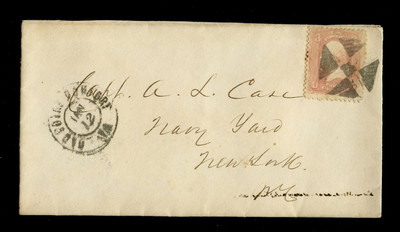 Capt. A. L. Case
Navy Yard
New York
N.Y.
JAN
12